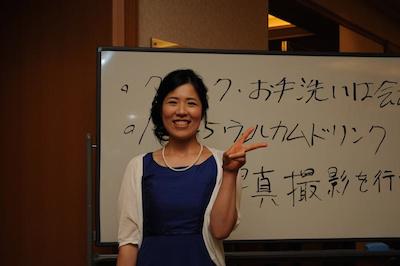 。ク ク・お手洗いは会
5 ウェルカムドリンク
写真撮影を行